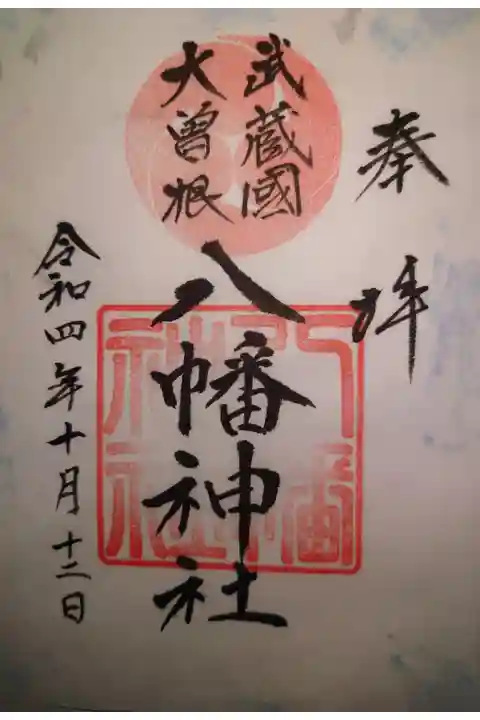 奉拝
武蔵國
大曽根
八幡神社
令和四年十月十二日
八幡
神社